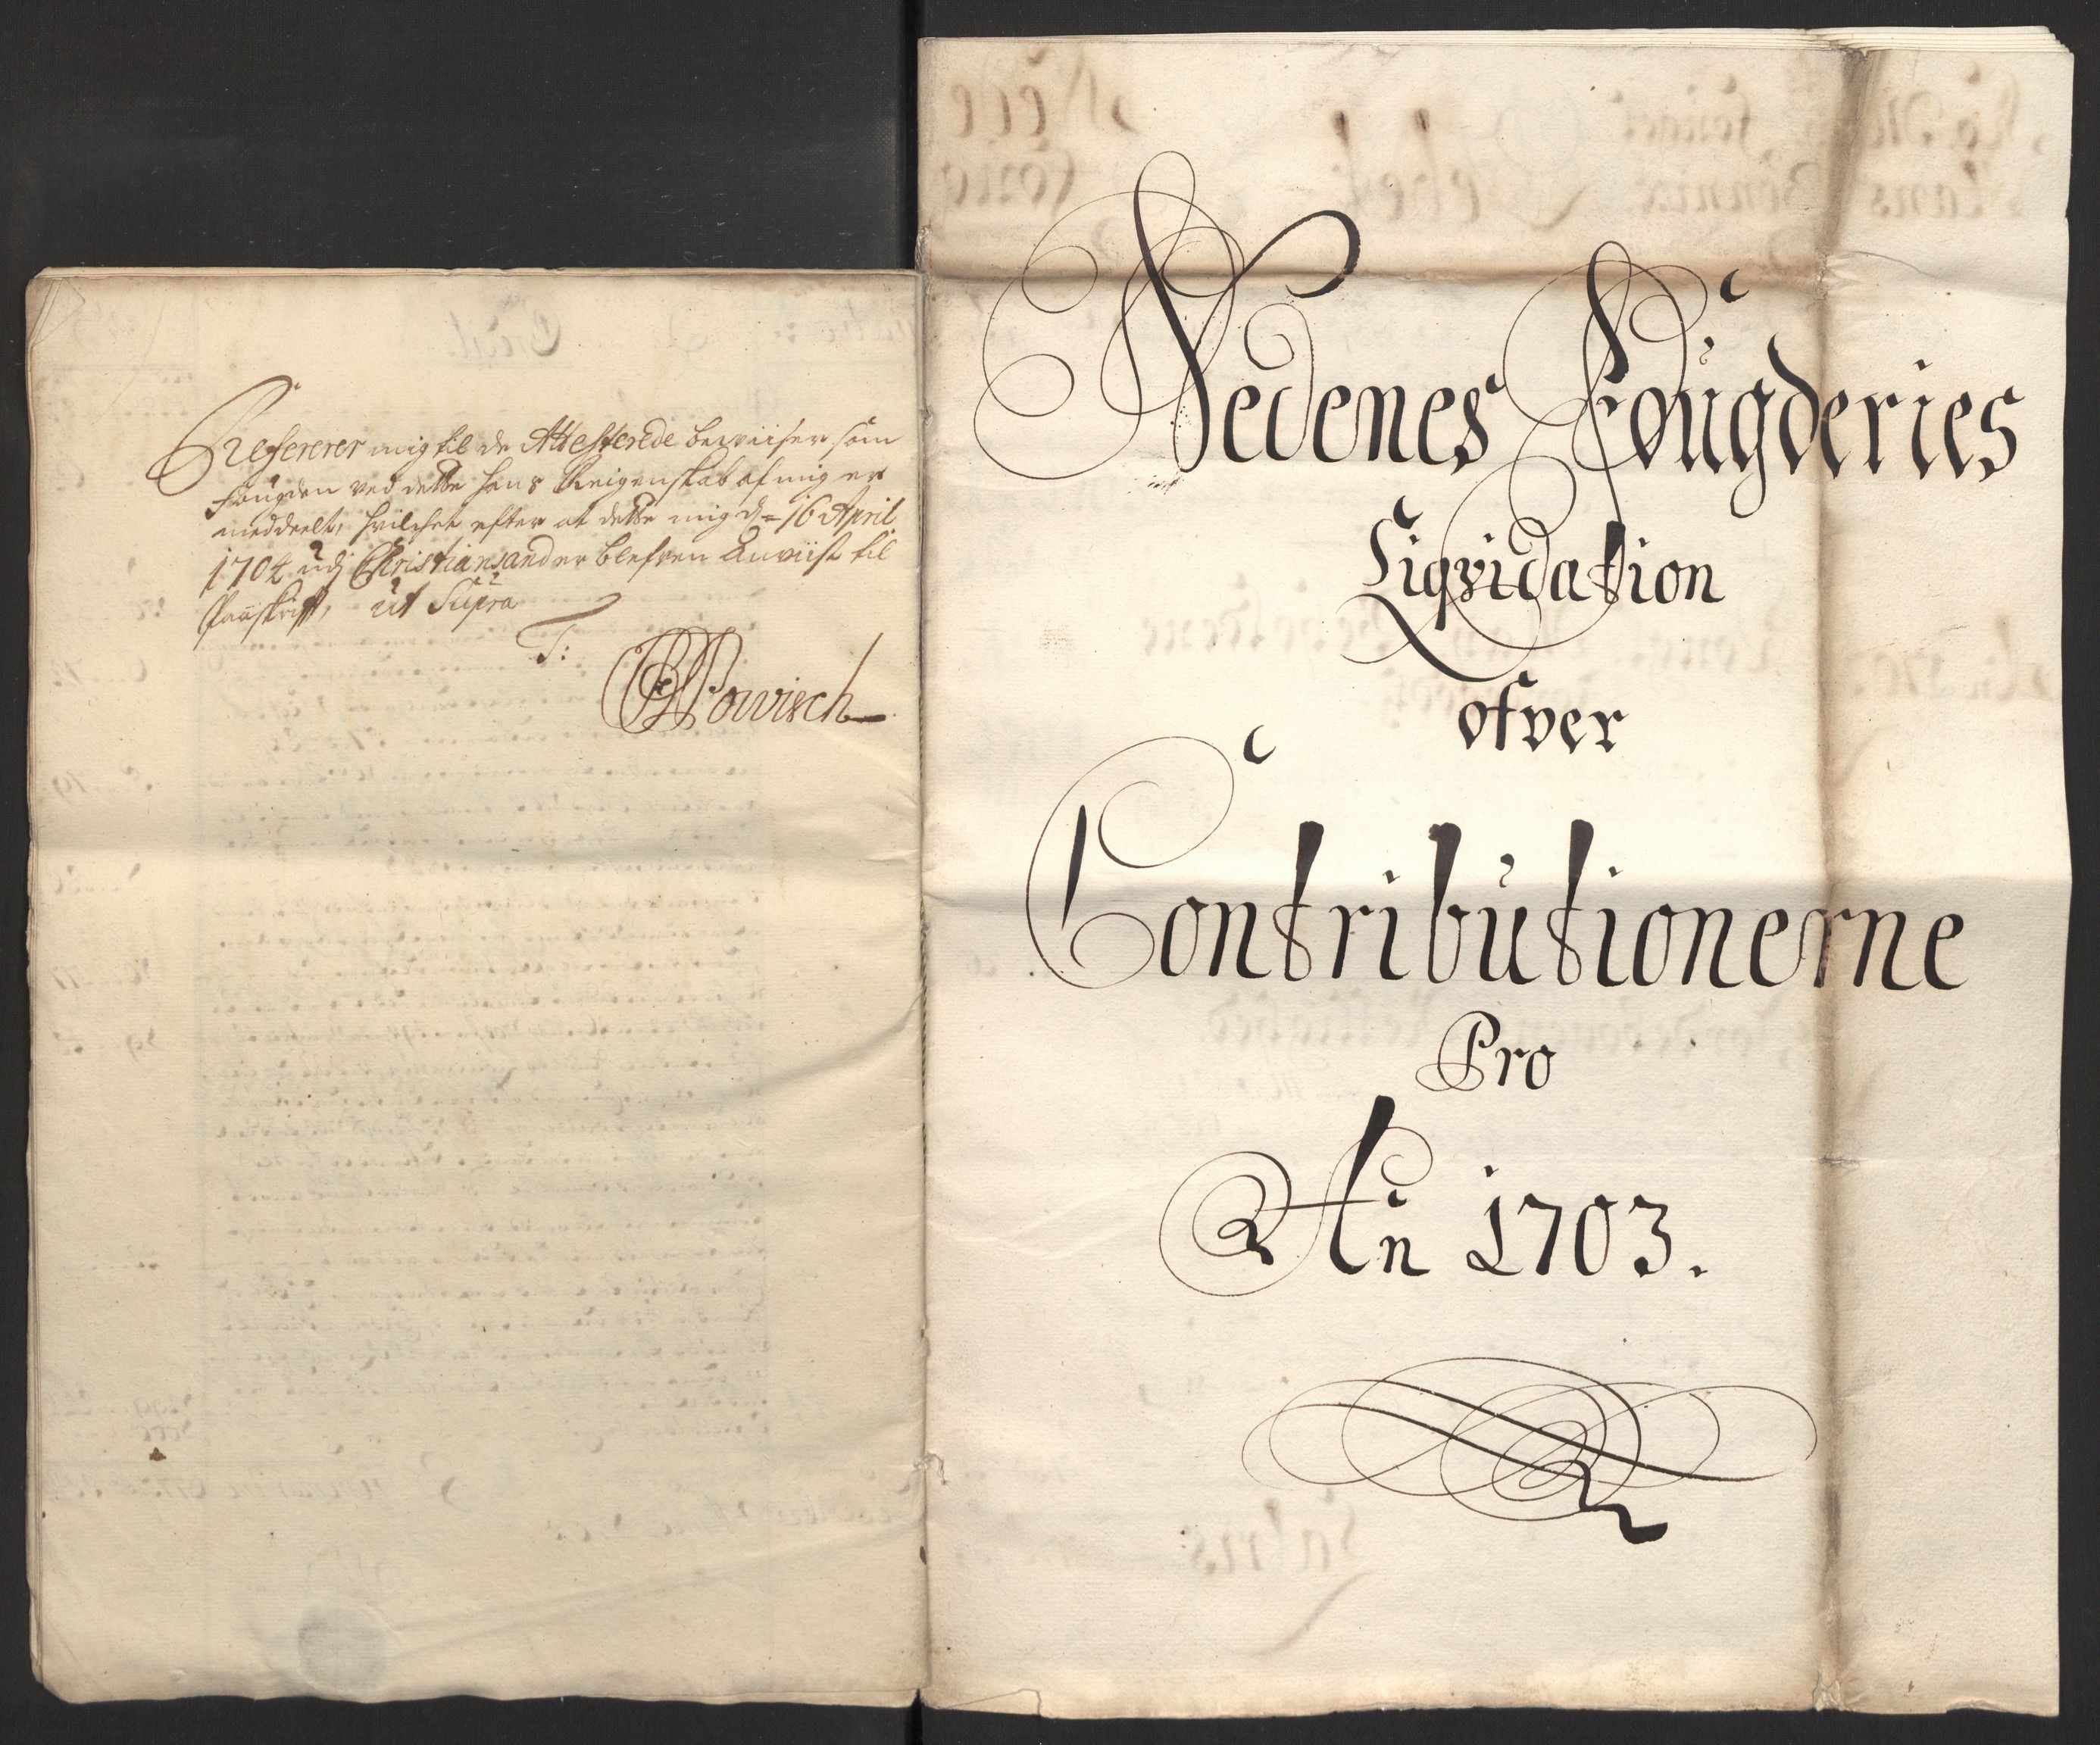 Refererer mig til de Attesterede beviiser som
fougden ved dette hans Reigenskab af mig er
meddeelt, hvilchet efter at dette mig d= 16 April
1704 udj Christiansand er blefven Anviist til
Paaskrifft, ut Supra
T:
Powisch
Nedenes Fougderies
Liqvidation
ofver
Contributionerne
Pro
An 1703.